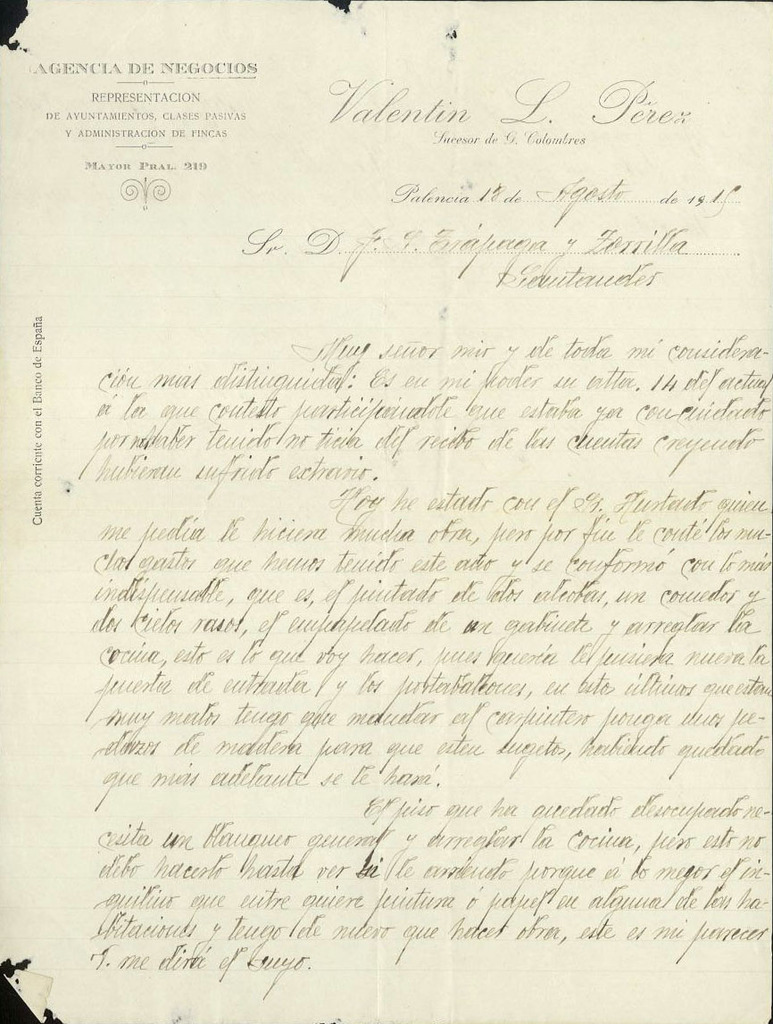 AGENCIA DE NEGOCIOS
REPRESENTACION
DE AYUNTAMIENTOS, CLASES PASIVAS
Y ADMINISTRACIÓN DE FINCAS
MAYOR PRAL. 219
Valentin L. Pérez
Sucesor de G. Colombres
Palencia 18 de Agosto de 191
Sr. D. J. G. Zorrilla
Santander
Cuenta corriente con el Banco de España
Muy señor mio y de toda mi considera-
ción mas distinguida: Es en mi poder su atta. 14 del actual
á la que contesto participándole que estaba ya con cuidado
por no haber tenido noticia del recibo de las cuentas creyendo
hubieran sufrido extravio.
Hoy he estado con el Sr. Hurtado quien
me pedia le hiciera mucha obra, pero por fin le conté los mu-
chos gastos que hemos tenido este año y se conformó con lo mas
indispensable, que es, el pintado de dos alcobas, un comedor y
dos cielos rasos, el empapelado de un gabinete y arreglar la
cocina, esto es lo que voy hacer, pues queria le pusiera nueva la
puerta de entrada y los portabalcones, en estos últimos que estan
muy malos tengo que mandar al carpintero ponga unos pe-
dazos de madera para que esten sugetos, habiendo quedado
que más adelante se le hará.
El piso que ha quedado desocupado ne-
cesita un blanqueo general y arreglar la cocina, pero esto no
debo hacerlo hasta ver si le arriendo porque á lo mejor el in-
quilino que entre quiere pintura ó papel en alguna de las ha-
bitaciones y tengo de nuevo que hacer obra, este es mi parecer
V. me dirá el suyo.